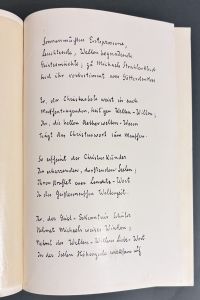 Sonnenmächten Entsprossene,
Leuchtende, Welten begnadende
Geistesmächte; zu Michaels Strahlenkleid
Seid ihr vorbestimmt vom Götterdenken.
Er, der Christusbote weist in euch
Menschentragenden, heil'gen Welten-Willen;
Ihr, die hellen Aetherwelten-Wesen
Trägt das Christuswort zum Menschen.
So erscheint der Christus Künder
Den erharrenden, dürstenden Seelen;
Ihnen strahlet euer Leuchte-Wort
In des Geistesmenschen Weltenzeit.
Ihr, der Geist-Erkenntnis Schüler
Nehmet Michaels weises Winken,
Nehmt des Welten-Willens Liebe-Wort
In der Seelen Höhenziele wirksam auf